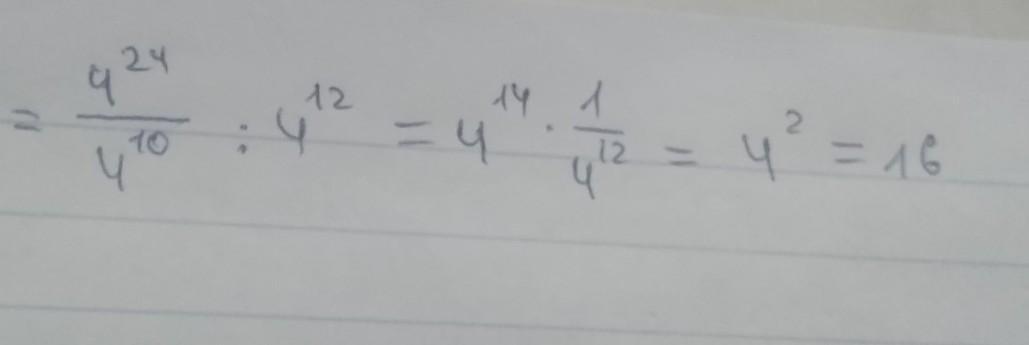 = 4^24/4^10 : 4^12 = 4^14 · 1/4^12 = 4^2 = 16